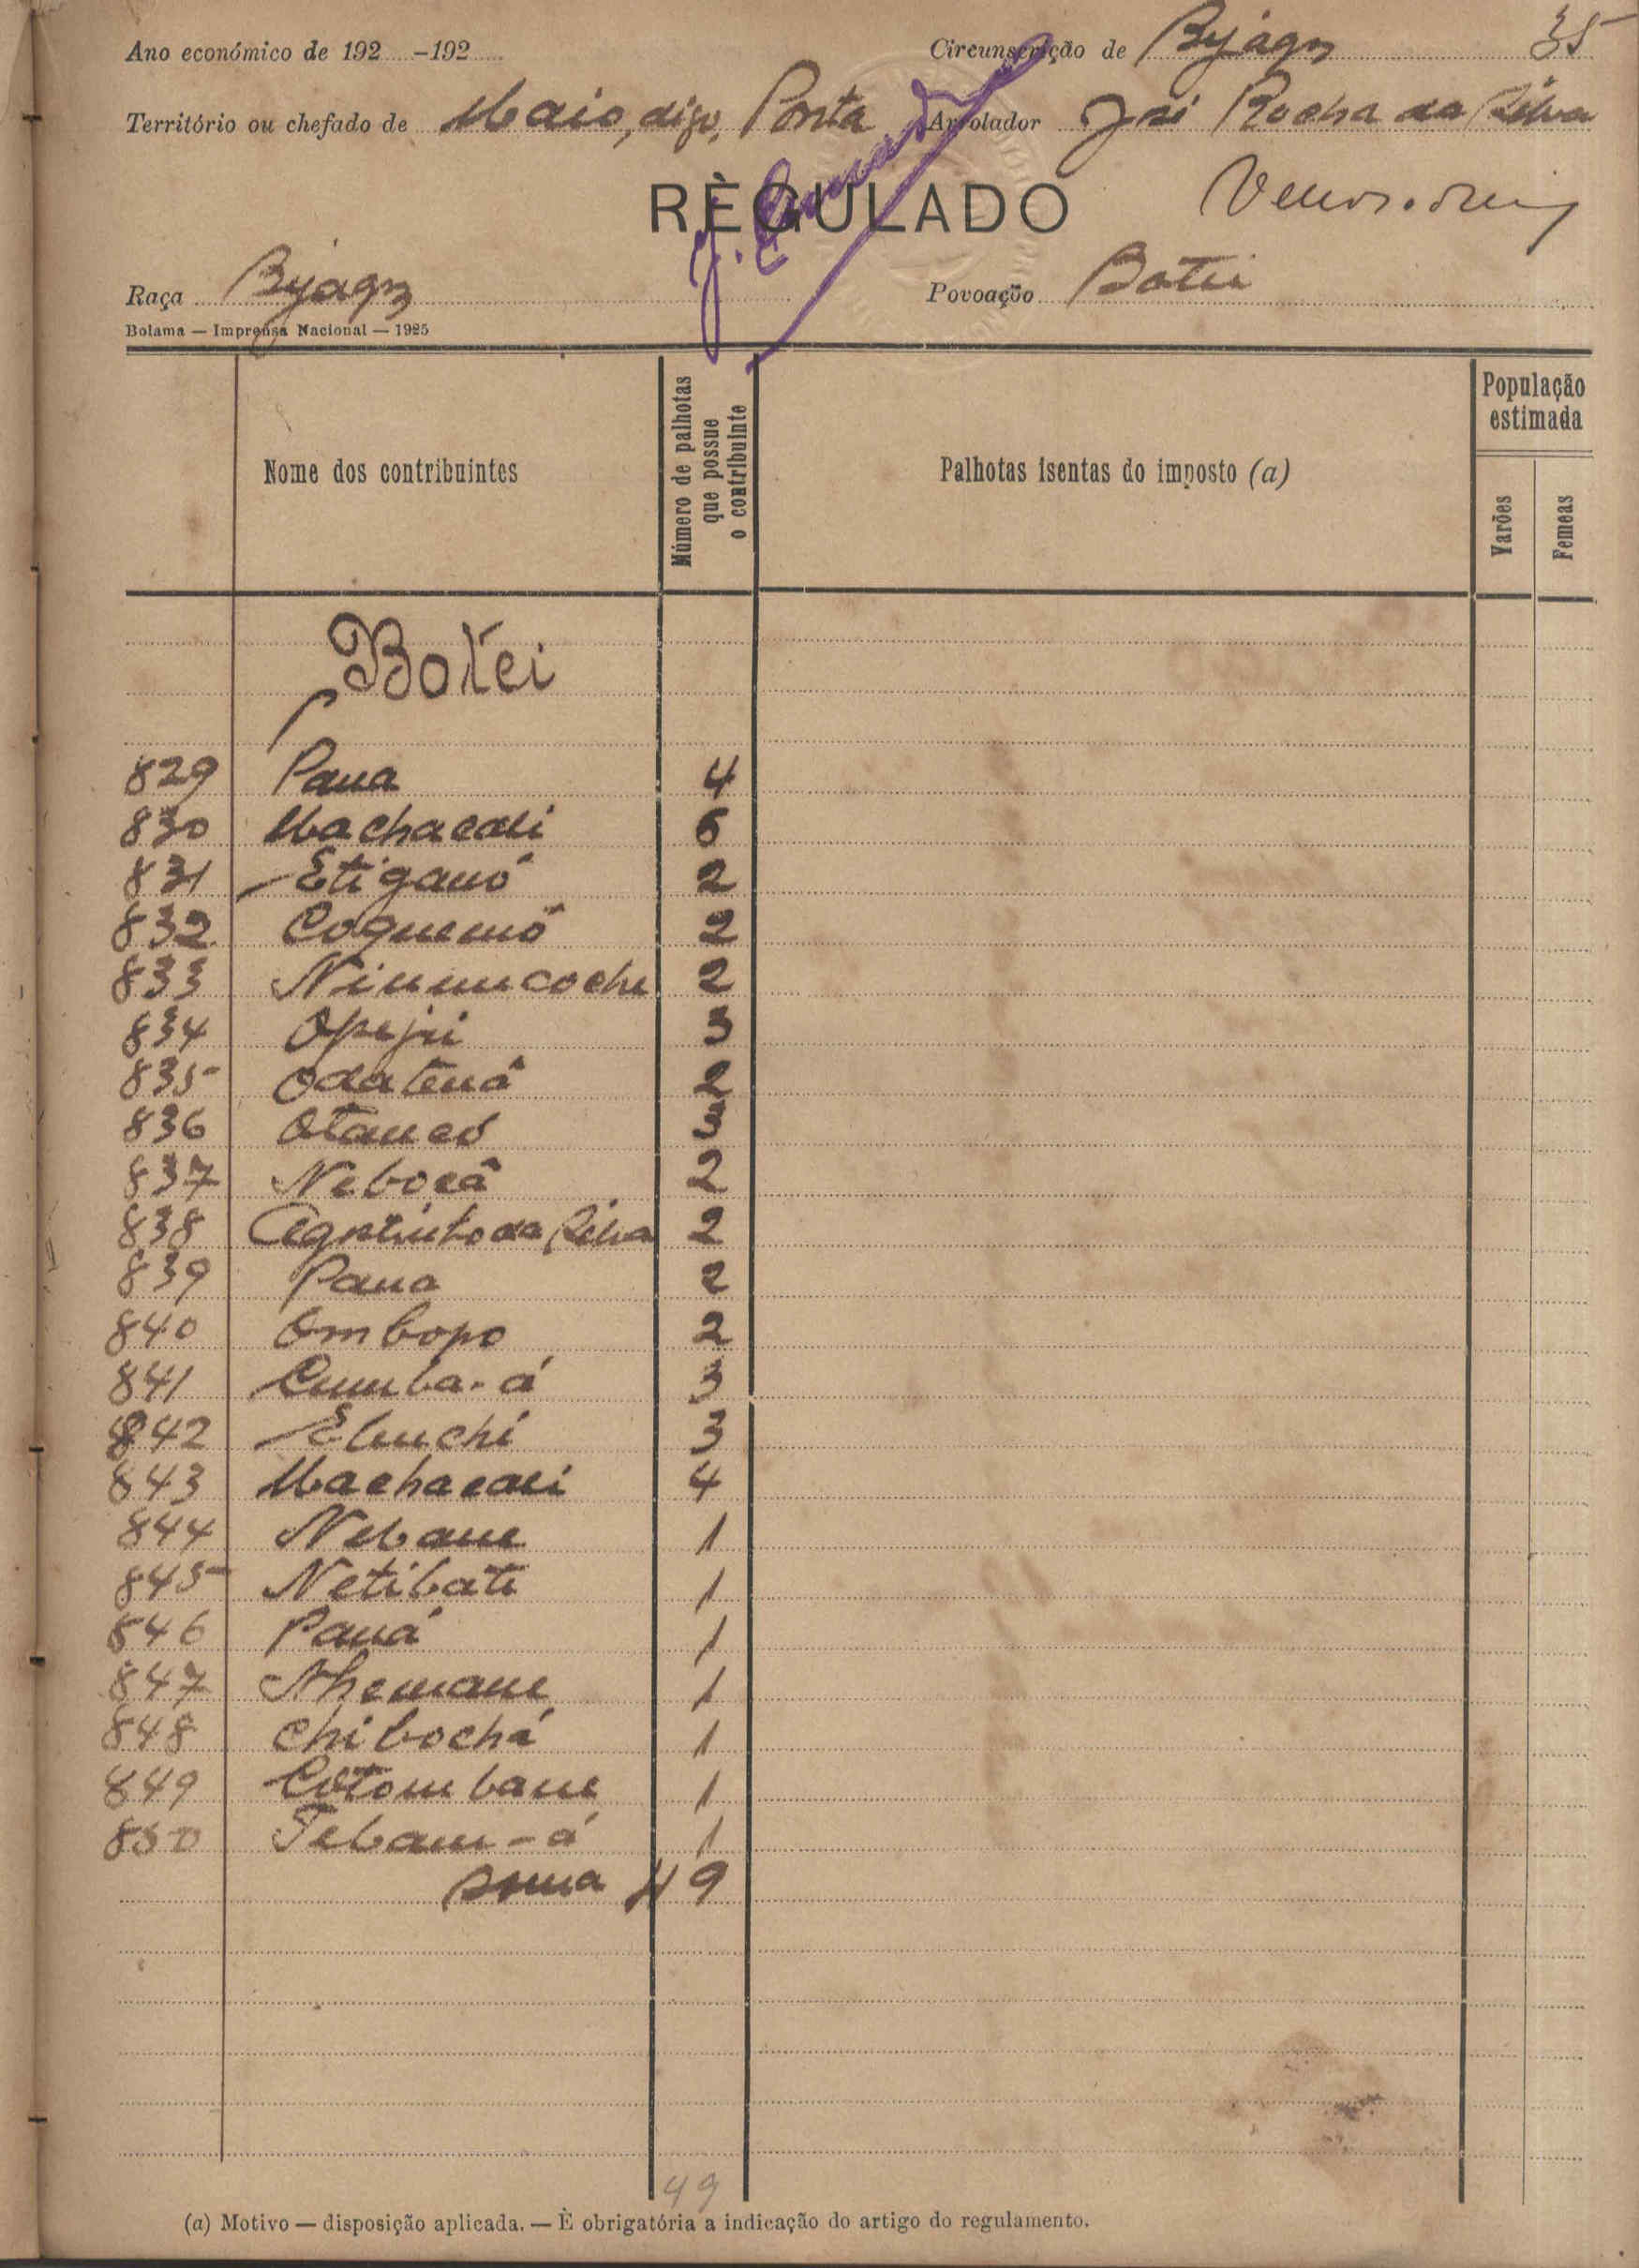 Ano económico de 192 -192 Circunscrição de Byagoz 35
Território ou chefado de Maio, digo, Ponta Arrolador José Rocha da Silva
RÈGULADO
Raça Bijagoz Povoação Botei
Bolama — Imprensa Nacional — 1925
Nome dos contribuintes
Número de palhotas que possue o contribuinte
Palhotas isentas do imposto (a)
População estimada
Varões
Femeas
Botei
829 Paua 4
830 Machacali 6
831 Etiganó 2
832 Coquemó 2
833 2
834 Opejui 3
835 Odatená 2
836 Otancó 3
837 Nebocâ 2
838 Agostinho da Silva 2
839 Paua 2
840 Ombopo 2
841 Cumba-á 3
842 Ebuchi 3
843 Machacali 4
844 Nebane 1
845 Netibate 1
846 Pauá 1
847 Nhemane 1
848 Chibochá 1
849 Cotombane 1
850 Tebam-á 1
soma 49
49
(a) Motivo — disposição aplicada. — È obrigatória a indicação do artigo do regulamento.